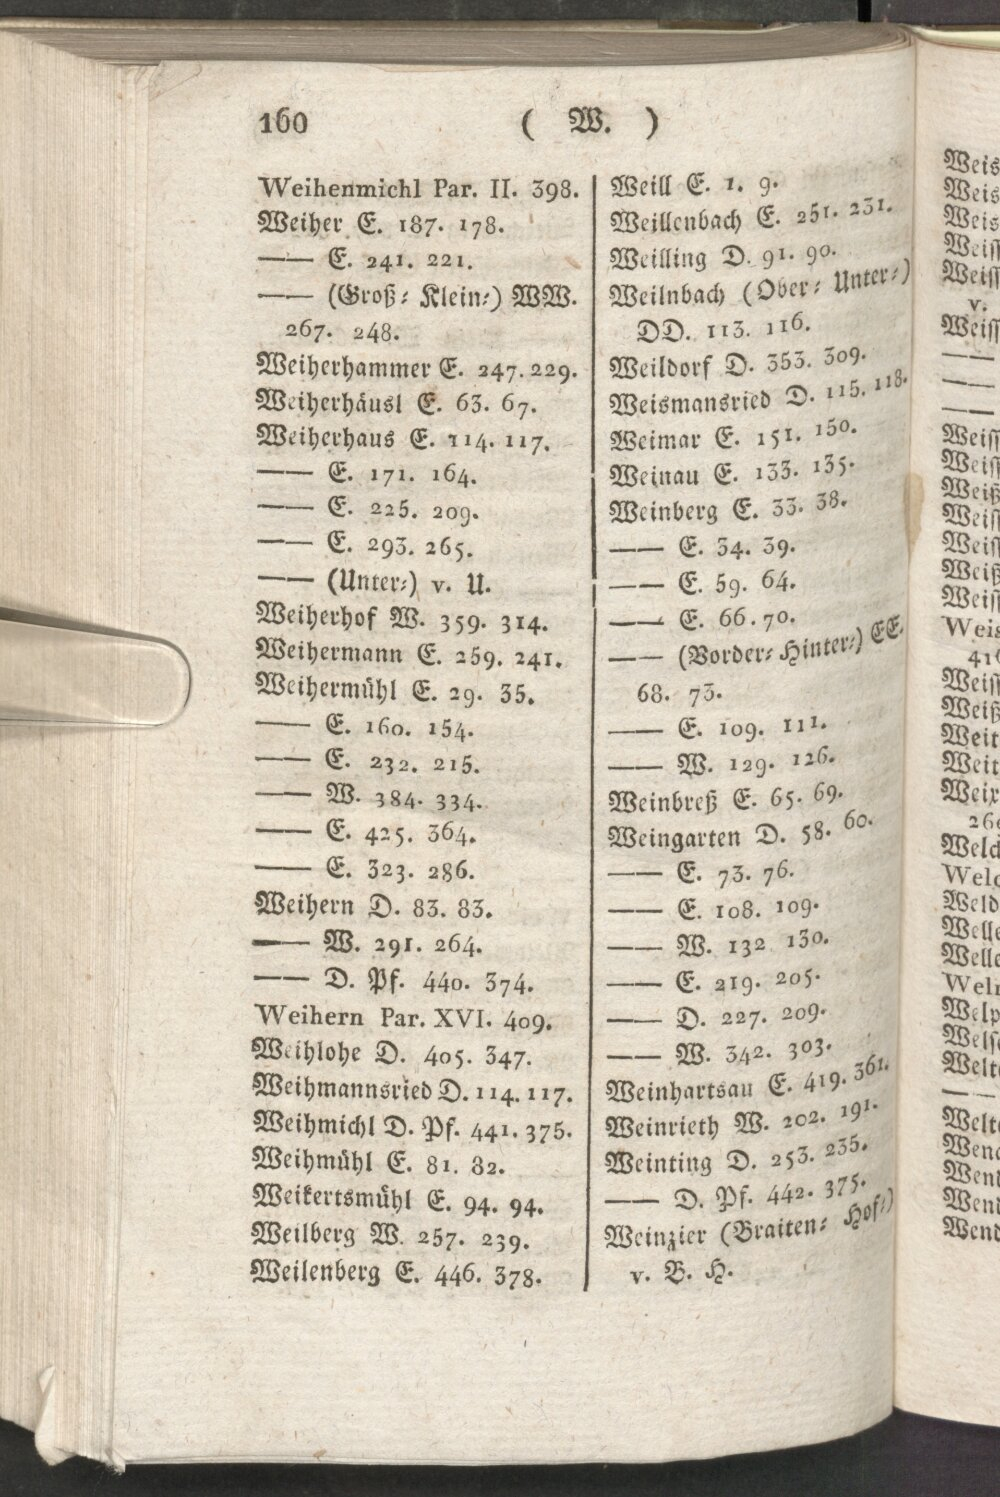 160 ( W. )
Weihenmichl Par. II. 398.
Weiher E. 187. 178.
—— E. 241. 221.
—— (Groß⸗ Klein⸗) WW.
267. 248.
Weiherhammer E. 247. 229.
Weiherhäusl E. 63. 67.
Weiherhaus E. 114. 117.
—— E. 171. 164.
—— E. 225. 209.
—— E. 293. 265.
—— (Unter⸗) v. U.
Weiherhof W. 359. 314.
Weihermann E. 259. 241.
Weihermühl E. 29. 35.
—— E. 160. 154.
—— E. 232. 215.
—— W. 384. 334.
—— E. 425. 364.
—— E. 323. 286.
Weihern D. 83. 83.
—— W. 291. 264.
—— D. Pf. 440. 374.
Weihern Par. XVI. 409.
Weihlohe D. 405. 347.
Weihmannsried D. 114. 117.
Weihmichl D. Pf. 441. 375.
Weihmühl E. 81. 82.
Weikertsmühl E. 94. 94.
Weilberg W. 257. 239.
Weilenberg E. 446. 378.
Weill E. 1. 9.
Weillenbach E. 251. 231.
Weilling D. 91. 90.
Weilnbach (Ober⸗ Unter⸗)
DD. 113. 116.
Weildorf D. 353. 309.
Weismansried D. 115. 118.
Weimar E. 151. 150.
Weinau E. 133. 135.
Weinberg E. 33. 38.
—— E. 34. 39.
—— E. 59. 64.
—— E. 66. 70.
—— (Vorder⸗ Hinter⸗) EE.
68. 73.
—— E. 109. 111.
—— W. 129. 126.
Weinbreß E. 65. 69.
Weingarten D. 58. 60.
—— E. 73. 76.
—— E. 108. 109.
—— W. 132 130.
—— E. 219. 205.
—— D. 227. 209.
—— W. 342. 303.
Weinhartsau E. 419. 361.
Weinrieth W. 202. 191.
Weinting D. 253. 235.
—— D. Pf. 442. 375.
Weinzier (Braiten⸗ Hof⸗)
v. B. H.